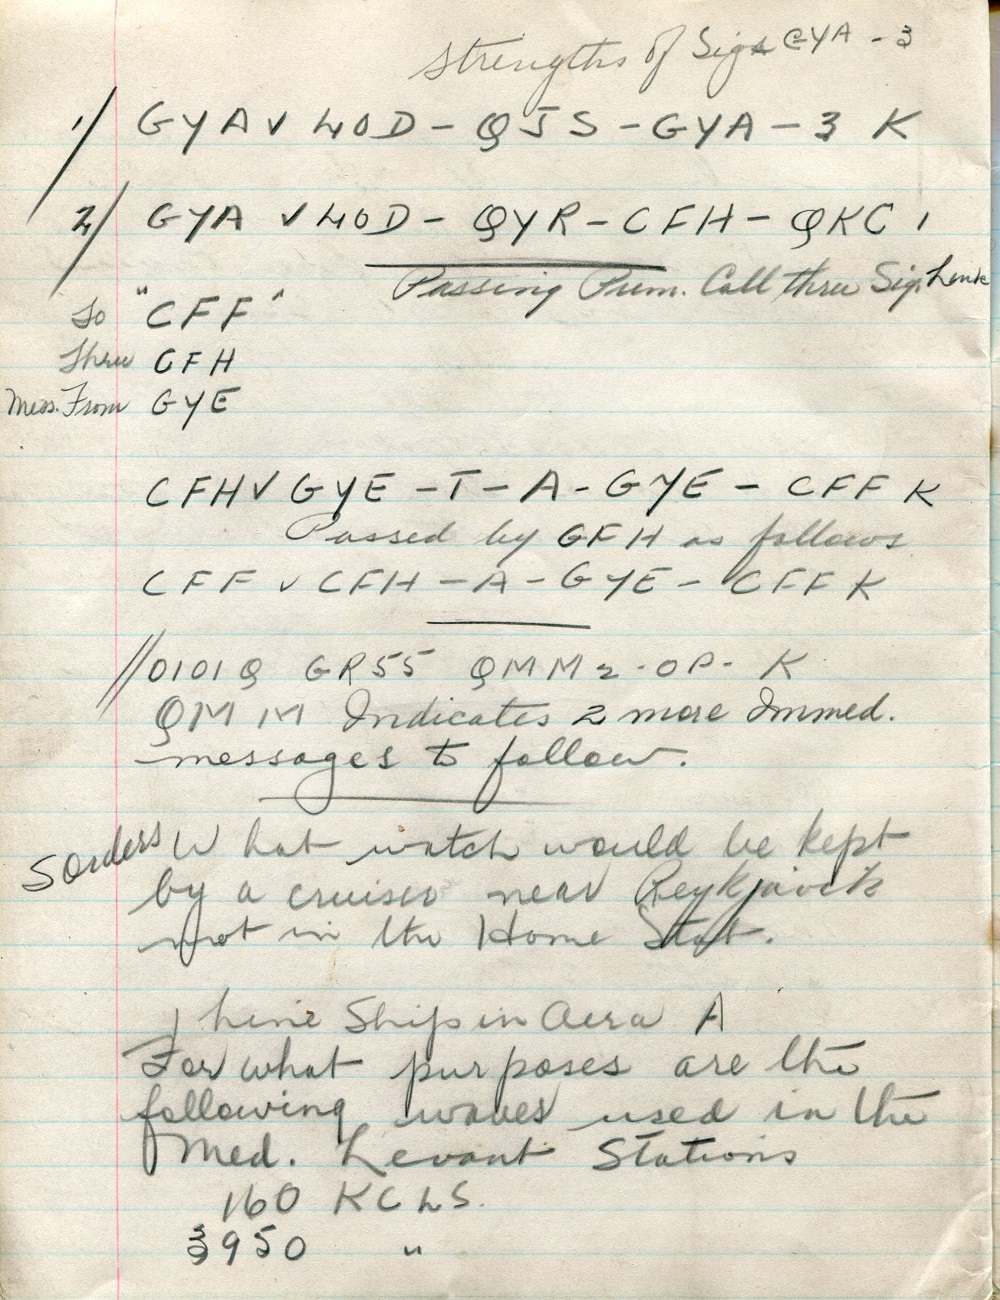 Strengths of Sigs GYA - 3
1/ GYA V 4OD - QJS - GYA - 3 K
2/ GYA V 4OD - QYR - CFH - QKC 1
Passing Prem. Call thru Sig. Link
To "CFF"
Thru CFH
Mess. From GYE
CFH V GYE - T - A - GYE - CFF K
Passed by CFH as follows
CFF V CFH - A - GYE - CFF K
// 0101Q GR55 QMM 2 - OP - K
QMM Indicates 2 more Immed.
messages to follow.
S Orders What watch would be kept
by a cruiser near Reykjavick
not in the Home Stat.
1 Line Ship in Aera A
For what purposes are the
following waves used in the
Med. Levant Stations
160 KCLS.
3950 "